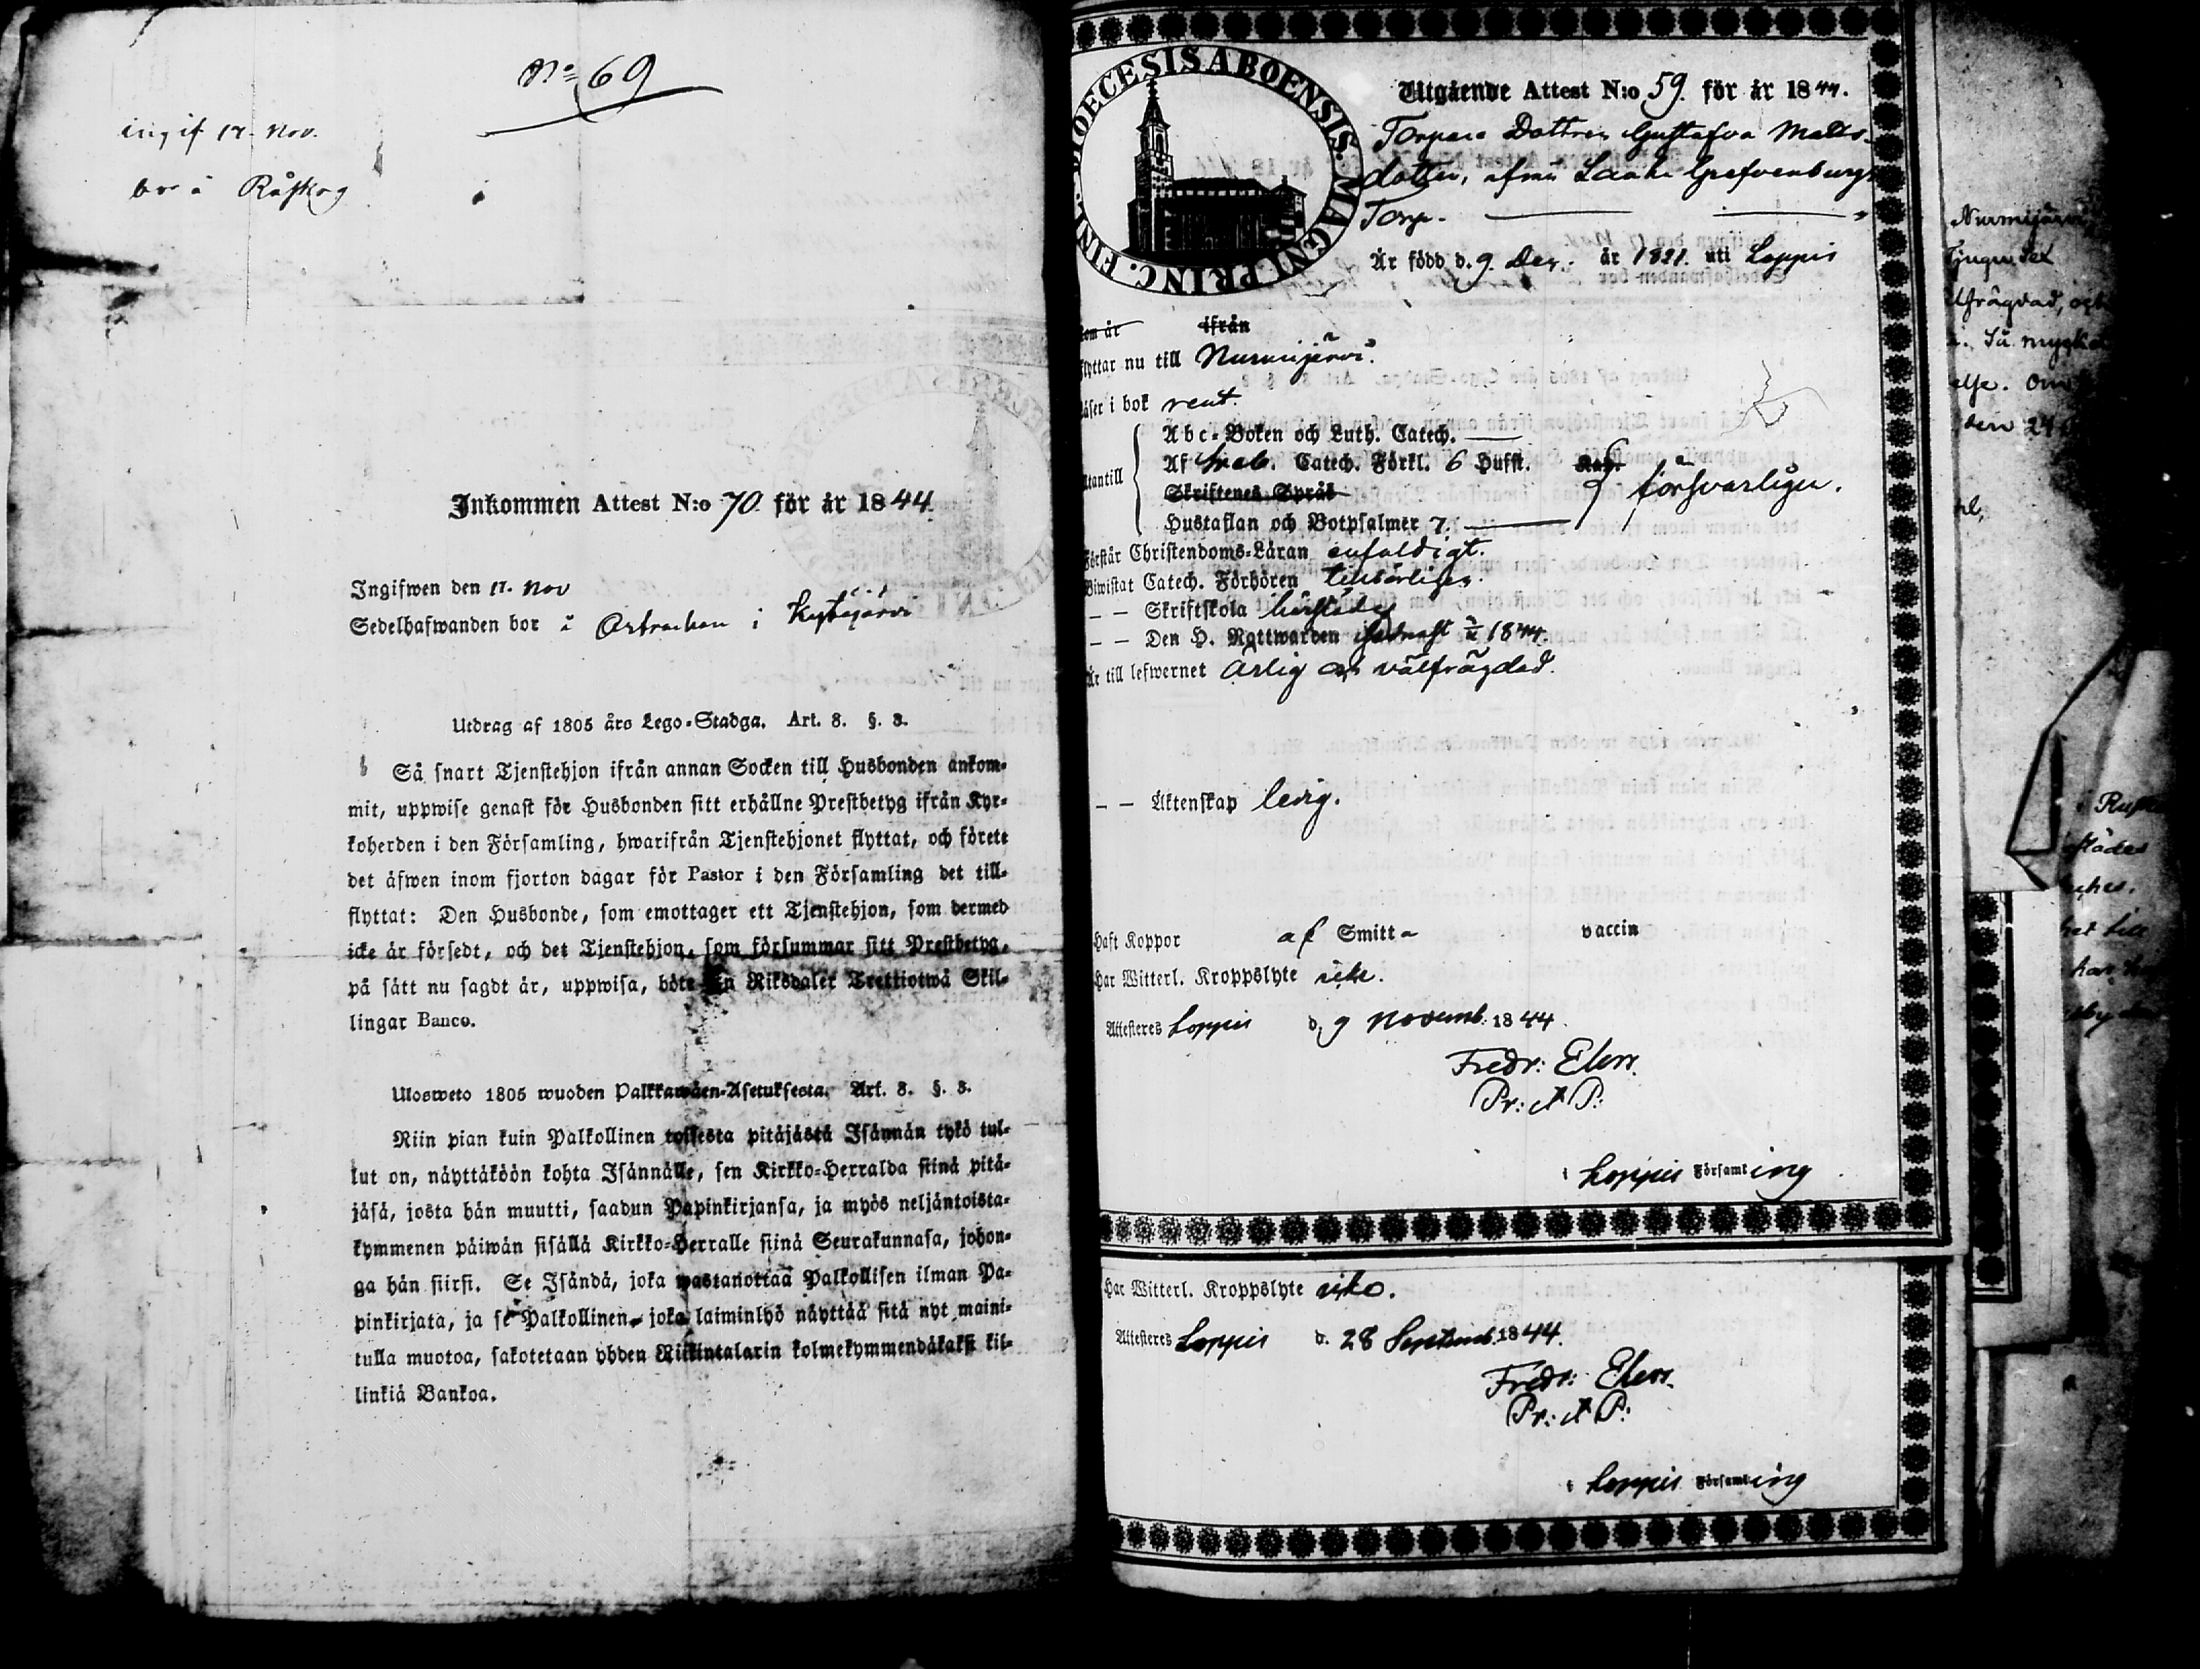 No 69
ingif 17. Nov.
bor å Råskog
Inkommen Attest N:o 70 för år 1844.
Ingifwen den 17. Nov
Sedelhafwanden bor å Astrachan i Kytäjärvi
Utdrag af 1805 års Lego-Stadga. Art. 8. §. 3.
Så snart Tjenstehjon ifrån annan Socken till Husbonden ankom-
mit, uppwise genast för Husbonden sitt erhållne Prestbetyg ifrån Kyr-
koherden i den Församling, hwarifrån Tjenstehjonet flyttat, och förete
det äfwen inom fjorton dagar för Pastor i den Församling det till-
flyttat: Den Husbonde, som emottager ett Tjenstehjon, som dermed
icke är försedt, och det Tjenstehjon, som försummar sitt Prestbetyg,
på sätt nu sagdt är, uppwisa, böte En Riksdaler Trettiotwå Skil-
lingar Banco.
Ulosweto 1805 wuoden Palkkawäen-Asetuksesta. Art. 8. §. 3.
Niin pian kuin Palkollinen toisesta pitäjästä Isännän tykö tul-
lut on, näyttäköön kohta Isännälle, sen Kirkko-Herralda siinä pitä-
jäsä, josta hän muutti, saadun Papinkirjansa, ja myös neljäntoista-
kymmenen päiwän sisällä Kirkko-Herralle siinä Seurakunnasa, johon-
ga hän siirsi. Se Isändä, joka wastanottaa Palkollisen ilman Pa-
pinkirjata, ja se Palkollinen, joka laiminlyö näyttää sitä nyt maini-
tulla muotoa, sakotetaan yhden Riikintalarin kolmekymmendäkaksi kil-
linkiä Bankoa.
DIOECESIS ABOENSIS. MAGNI PRINC. FINL.
Utgående Attest N:o 59. för år 1844.
Torpare Dottren Gustafva Matts-
dotter, ifrån Grefvenburgs
Torp.
Är född d. 9. Dec. år 1821. uti Loppis
kom år ifrån
flyttar nu till Nurmijärvi.
läser i bok rent.
Abc-Boken och Luth. Catech.
Af Sveb. Catech. Förkl. 6 Hufst.
utantill
Skriftenes Språk försvarligen.
Hustaflan och Botpsalmer 7.
Förstår Christendoms-Läran enfaldigt.
Biwistat Catech. Förhören tillbörligen.
– – Skriftskola
– – Den H. Nattwarden 1844.
Är till lefwernet ärlig och välfrägdad.
– – Äktenskap ledig.
Haft Koppor af Smitta vaccin
Har Witterl. Kroppslyte icke.
Attesteres Loppis d. 9 Novemb. 1844.
Fredr: Elers.
Pr: A P:
i Loppis Församling
Har Witterl. Kroppslyte icke.
Attesteres Loppis d. 28 Septemb. 1844.
Fredr: Elers.
Pr: A P:
i Loppis Församling
Nurmijärvi
Så mycket
den 24